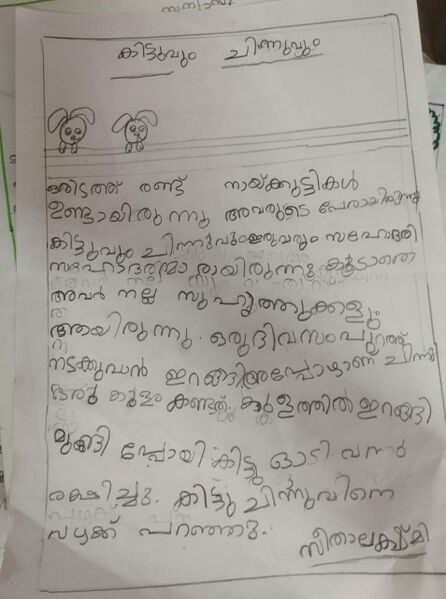 കിട്ടുവും ചിന്നുവും
ഒരിടത്ത് രണ്ട് നായ്ക്കുട്ടികൾ
ഉണ്ടായിരുന്നു അവരുടെ പേരായിരുന്നു
കിട്ടുവും ചിന്നുവും ഇരുവരും സഹോദരി
സഹോദരന്മാരായിരുന്നു കൂടാതെ
അവർ നല്ല സുഹൃത്തുക്കളും
ആയിരുന്നു. ഒരു ദിവസം പുറത്ത്
നടക്കുവാൻ ഇറങ്ങി അപ്പോഴാണ് ചിന്നു
ഒരു കുളം കണ്ടത്. കുളത്തിൽ ഇറങ്ങി
മുങ്ങി പ്പോയി കിട്ടു ഓടി വന്നു
രക്ഷിച്ചു. കിട്ടു ചിന്നുവിനെ
വഴക്ക് പറഞ്ഞു.
സീതാലക്ഷ്മി